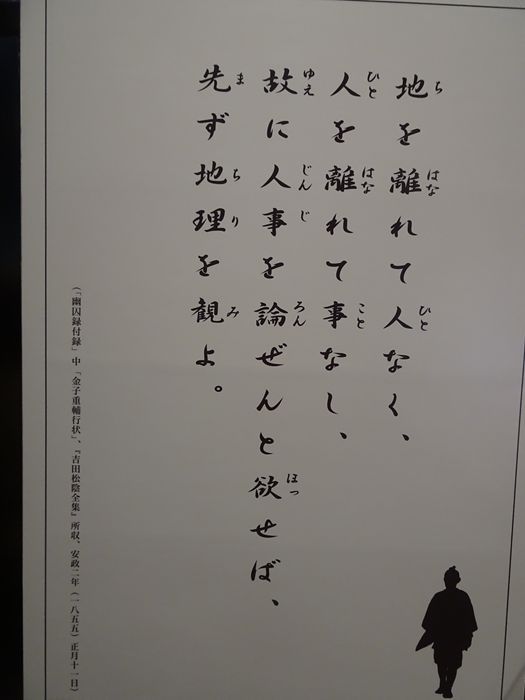 地を離れて人なく、
人を離れて事なし、
故に人事を論ぜんと欲せば、
先ず地理を観よ。
（「幽囚録付録」中「金子重輔行状」、『吉田松陰全集』所収、安政二年（一八五五）正月十一日）